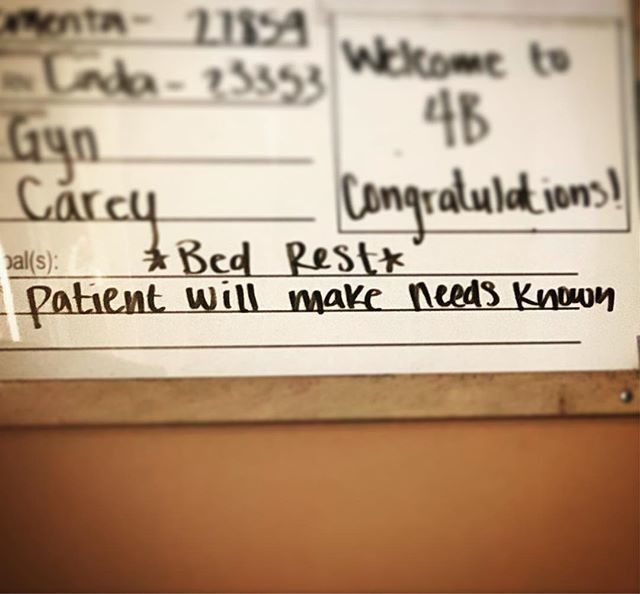 amenta- 27859
Linda- 23353
Gyn
Carey
Welcome to
4B
Congratulations!
oal(s): *Bed Rest*
patient will make needs known